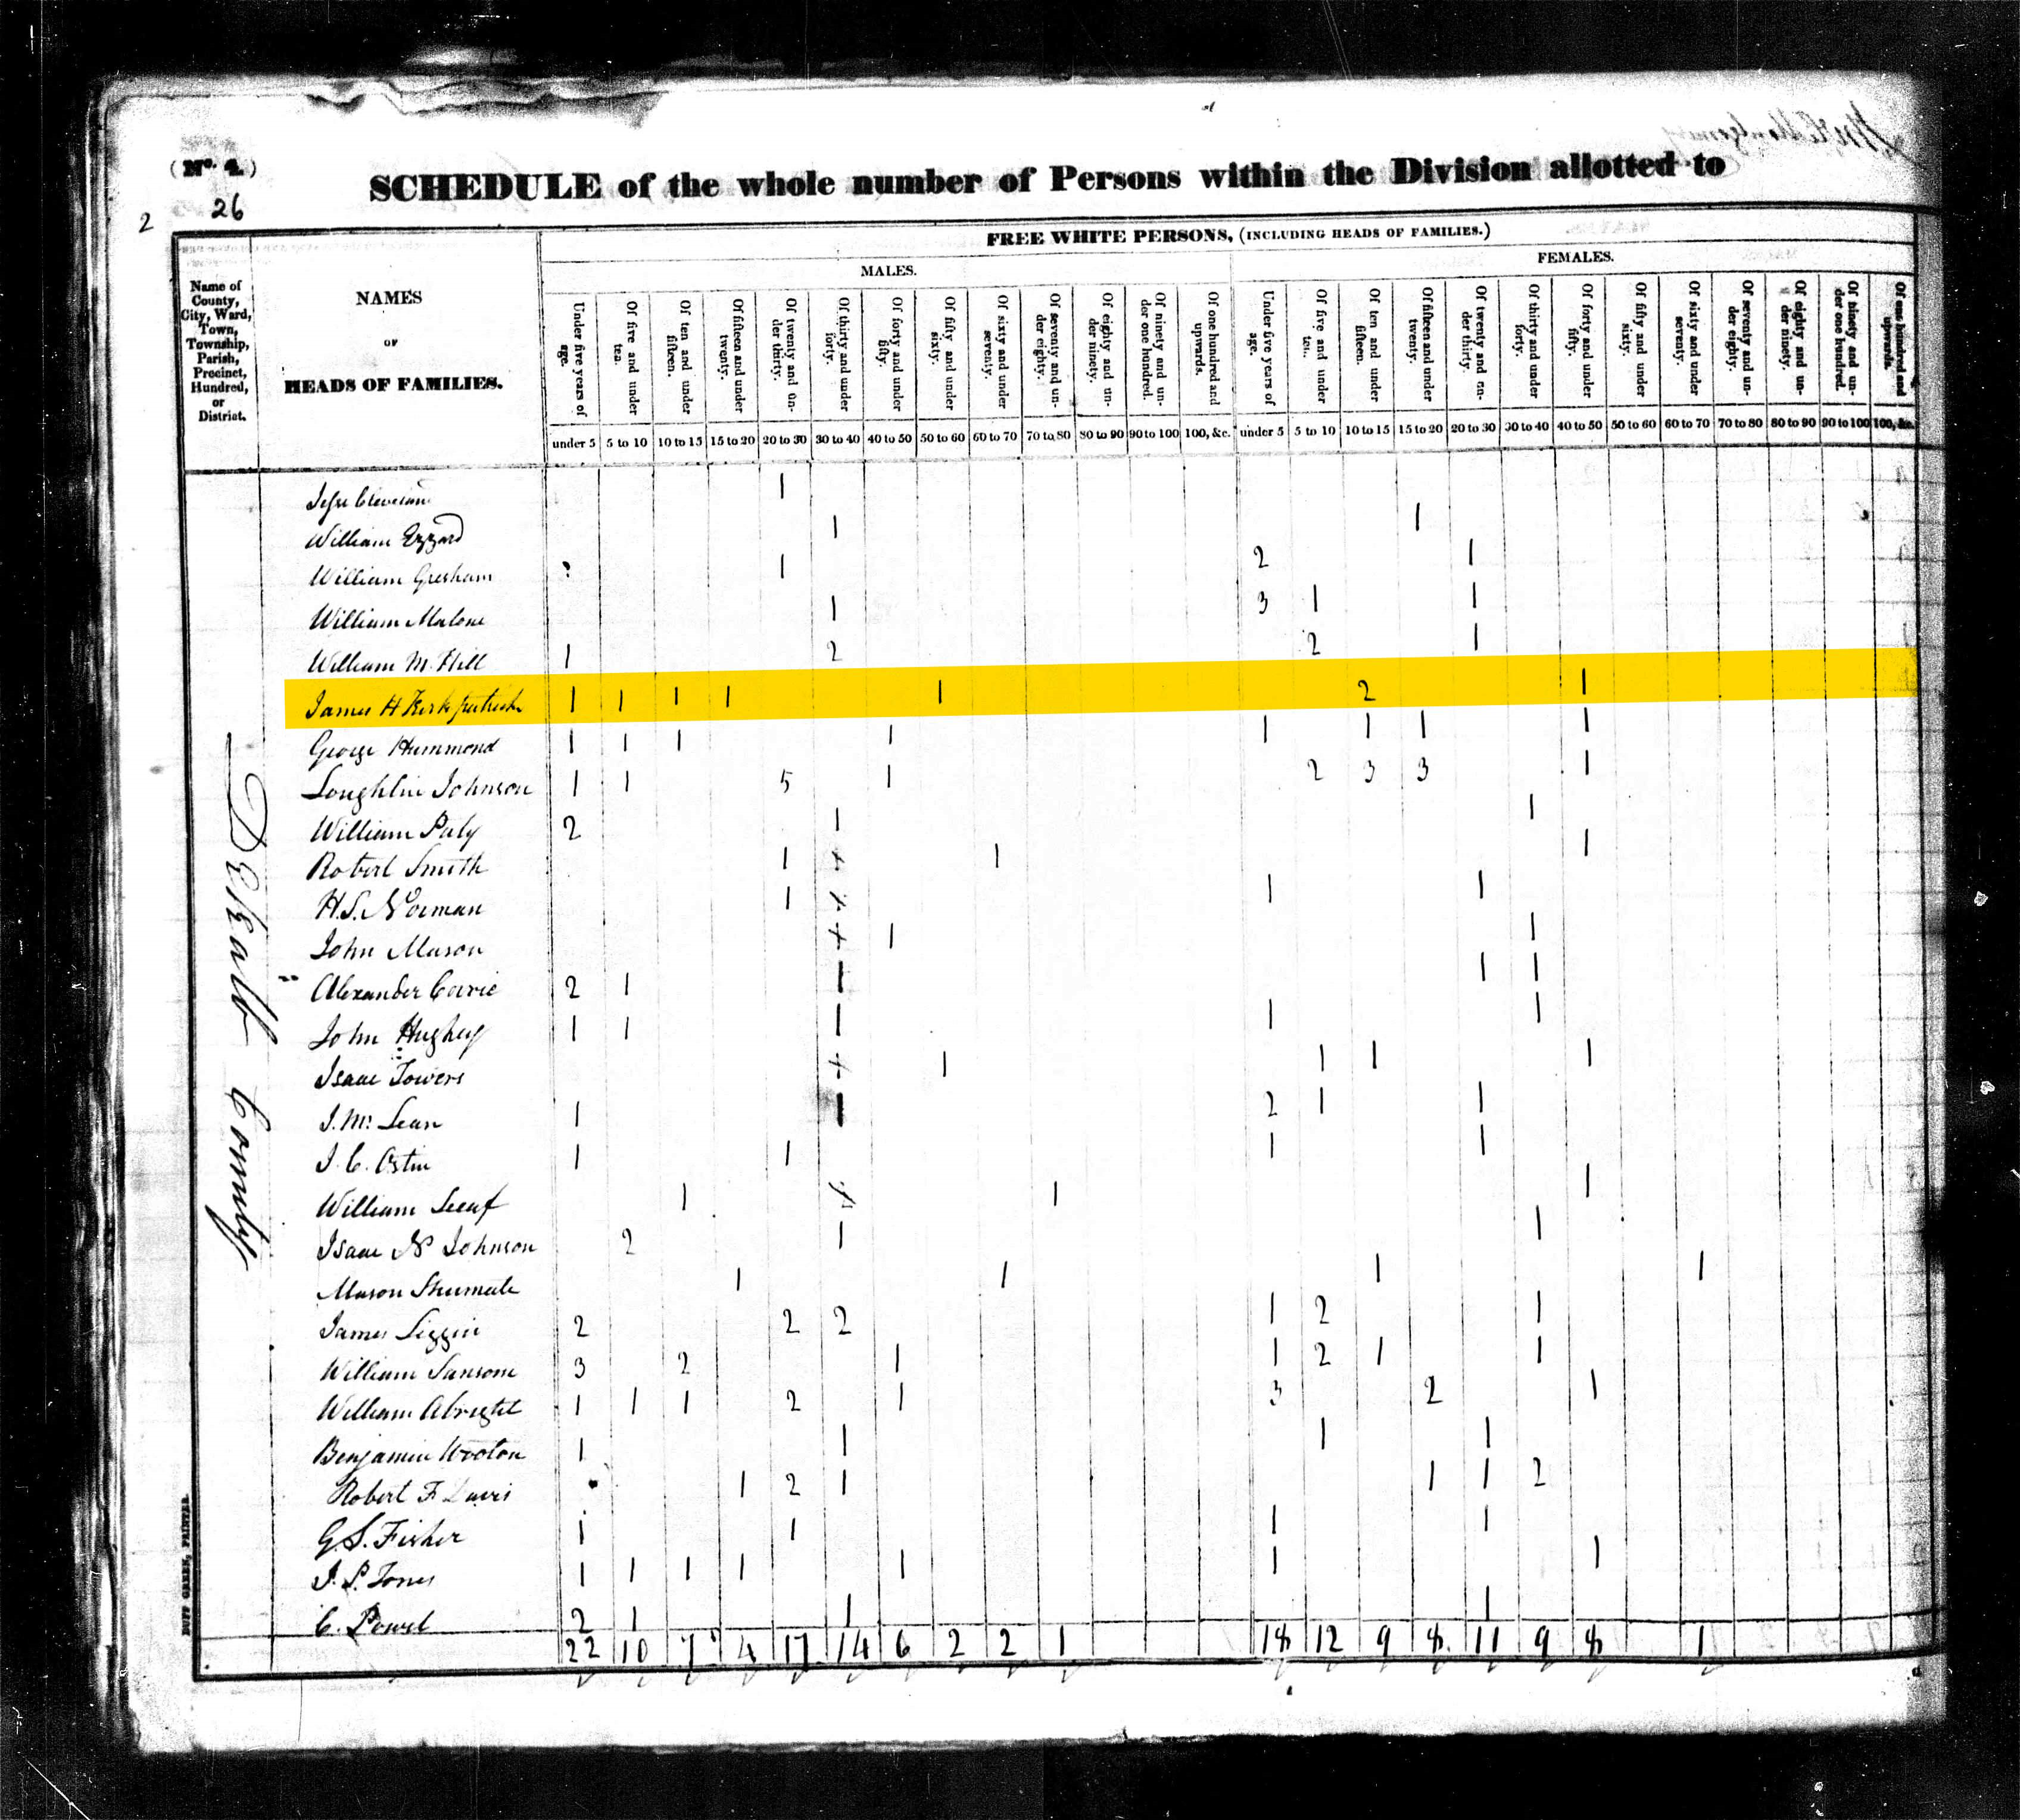 (No. 4.)
SCHEDULE of the whole number of Persons within the Division allotted to
2 26
FREE WHITE PERSONS, (INCLUDING HEADS OF FAMILIES.)
MALES. FEMALES.
Name of County, City, Ward, Town, Township, Parish, Precinct, Hundred, or District.
NAMES
OF
HEADS OF FAMILIES.
Under five years of age. Of five and under ten. Of ten and under fifteen. Of fifteen and under twenty. Of twenty and under thirty. Of thirty and under forty. Of forty and under fifty. Of fifty and under sixty. Of sixty and under seventy. Of seventy and under eighty. Of eighty and under ninety. Of ninety and under one hundred. Of one hundred and upwards. Under five years of age. Of five and under ten. Of ten and under fifteen. Of fifteen and under twenty. Of twenty and under thirty. Of thirty and under forty. Of forty and under fifty. Of fifty and under sixty. Of sixty and under seventy. Of seventy and under eighty. Of eighty and under ninety. Of ninety and under one hundred. Of one hundred and upwards.
under 5 5 to 10 10 to 15 15 to 20 20 to 30 30 to 40 40 to 50 50 to 60 60 to 70 70 to 80 80 to 90 90 to 100 100, &c. under 5 5 to 10 10 to 15 15 to 20 20 to 30 30 to 40 40 to 50 50 to 60 60 to 70 70 to 80 80 to 90 90 to 100 100, &c.
DeKalb County
1
William Ezzard 1 1
William Gresham 1 2 1
William Malone 1 3 1 1
William M. Hill 1 2 2 1
James H Kirkpatrick 1 1 1 1 1 2 1
George Hammond 1 1 1 1 1 1 1 1
Loughlin Johnson 1 1 5 1 2 3 3 1
William 2 1 1
Robert Smith 1 + 1 1
H.S. Norman 1 + 1 1
John Mason + 1 1
Alexander 2 1 1 1 1
John Hughey 1 1 1 1 1
Isaac Towers + 1 1 1 1
J. Mc Lean 1 1 2 1 1
J. C. Ostin 1 1 1 1
William 1 1 1
Isaac N Johnson 2 1 1
Mason Shumate 1 1 1 1
James 2 2 2 1 2 1
William Sansom 3 2 1 1 2 1 1
William Abright 1 1 1 2 1 3 2 1
Benjamin Wooton 1 1 1 1
Robert F Davis 1 2 1 1 1 2
G. S. Fisher 1 1 1 1
J. P. Jones 1 1 1 1 1 1 1
C. Powel 2 1 1 1
22 10 7 4 17 14 6 2 2 1 18 12 9 8 11 9 8 1
DUFF GREEN, PRINTER.